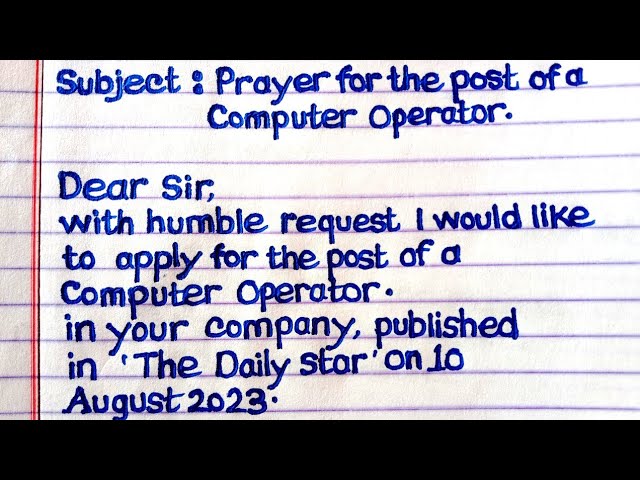 Subject : Prayer for the post of a
Computer Operator.
Dear Sir,
with humble request I would like
to apply for the post of a
Computer Operator.
in your company, published
in 'The Daily star' on 10
August 2023.